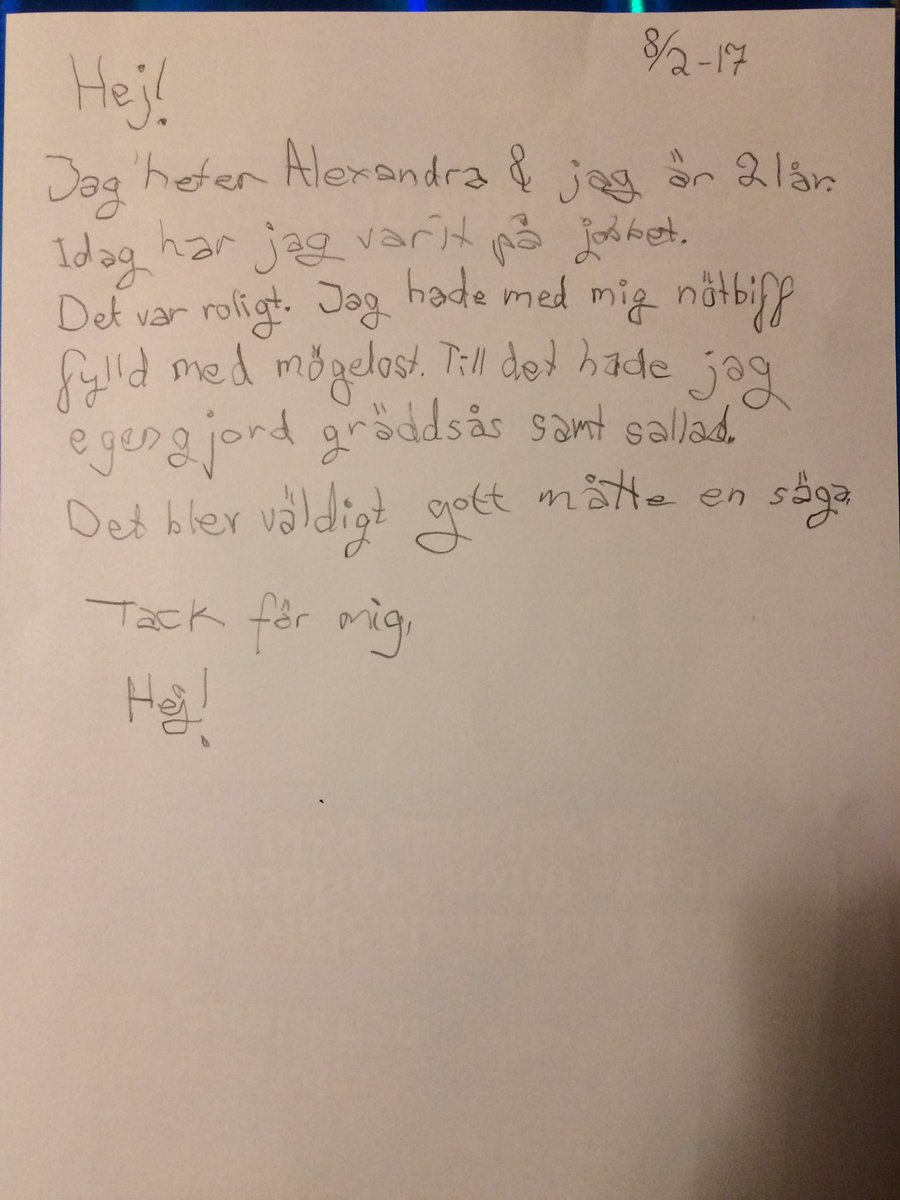 8/2-17
Hej!
Jag heter Alexandra & jag är 21år.
Idag har jag varit på jobbet.
Det var roligt. Jag hade med mig nötbiff
fylld med mögelost. Till det hade jag
egengjord gräddsås samt sallad.
Det blev väldigt gott måtte en säga.
Tack för mig,
Hej!